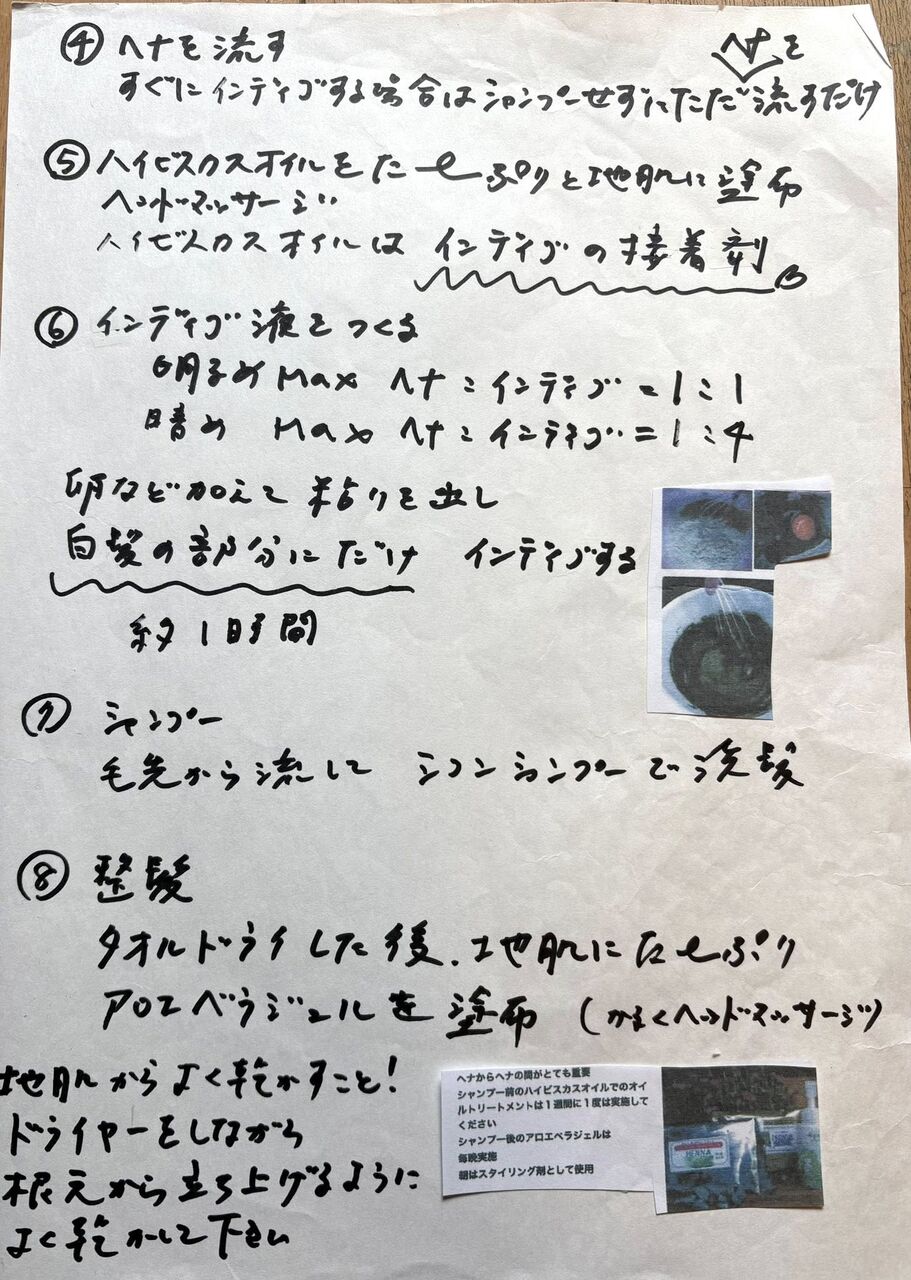 ④ ヘナを流す
ヘナを
すぐにインディゴする場合はシャンプーせずにただ流すだけ
⑤ ハイビスカスオイルをたっぷりと地肌に塗布
ヘッドマッサージ
ハイビスカスオイルは インディゴの接着剤
⑥ インディゴ液をつくる
明るめ Max ヘナ:インディゴ=1:1
暗め Max ヘナ:インディゴ=1:4
卵など加えて粘りを出し
白髪の部分にだけ インディゴする
約1時間
⑦ シャンプー
毛先から流して シコンシャンプーで洗髪
⑧ 整髪
タオルドライした後、地肌にたっぷり
アロエベラジェルを塗布 (かるくヘッドマッサージ)
地肌からよく乾かすこと!
ドライヤーをしながら
根元から立ち上げるように
よく乾かして下さい
ヘナからヘナの間がとても重要
シャンプー前のハイビスカスオイルでのオイ
ルトリートメントは1週間に1度は実施して
ください
シャンプー後のアロエベラジェルは
毎晩実施
朝はスタイリング剤として使用
HENNA